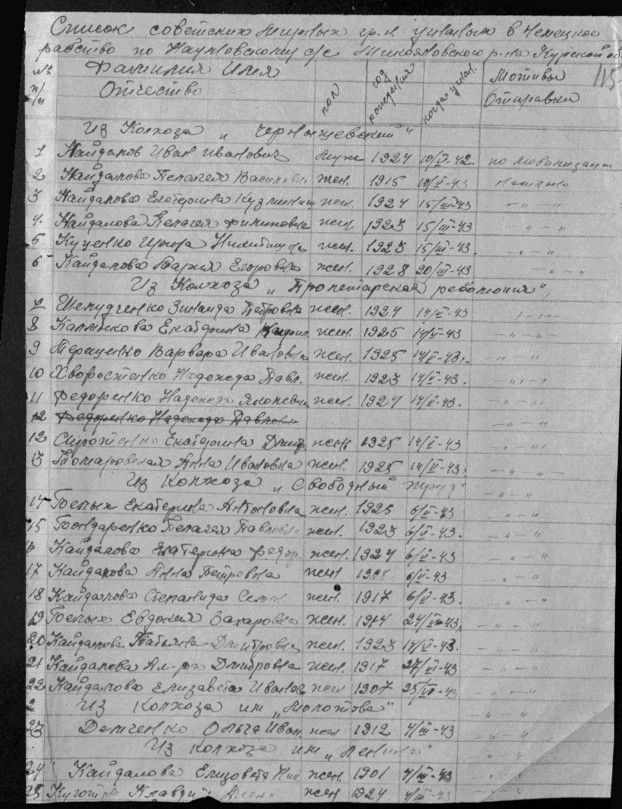 Список советских мирных гр-н угнаных в немецкое
рабство по Наумовскому с/с Микояновского р-на Курской об
115
№ п/п Фамилия Имя Отчество пол год рождения когда угнан Мотивы Отправки
Из Колхоза „Чернышевский"
1 Кайдалов Иван Иванович муж 1924 10/V-42. по мобилизации
2 Кайдалова Пелагея жен. 1915 10/V-43
3 Кайдалова Екатерина Кузминична жен. 1924 15/III-43 -"-
4. Кайдалова Пелагея Филиповна жен. 1923 15/III-43 -"-
5 Куценко Никитична жен. 1923 15/III-43 -"-
6 Кайдалова Мария Егоровна жен. 1928 20/III-43 -"-
Из Колхоза „Пролетарская революция",
7 Зинаида Петровна жен. 1924 14/V-43 -"-
8 Калмыкова Екатерина жен. 1925 14/V-43 -"-
9 Терещенко Варвара Ивановна жен. 1925 14/V-43. -"-
10 Хворостенко Надежда Павл. жен. 1923 14/V-43. -"-
11 Федоренко Надежда жен. 1924 14/V-43. -"-
12 Федоренко Надежда Павловна -"-
12 Екатерина Дмит жен 1925 14/V-43 -"-
13 Анна Ивановна жен. 1925 14/V-43. -"-
Из Колхоза „Свободный труд" -"-
14 Екатерина Антоновна жен. 1925 6/V-43 -"-
15 Бондаренко Пелагея Павловна жен. 1923 6/V-43. -"-
Кайдалова Екатерина Федор. жен. 1924 6/V-43 -"-
17 Кайдалова Анна Петровна жен 6/V-43 -"-
18 Кайдалова Степанида жен. 1917 6/V-43. -"-
19 Евдокия Захаровна жен. 1914 -"-
20 Кайдалова Татьяна Дмитровна жен. 1923 14/V-43. -"-
21 Кайдалова Ал-ра Дмитровна жен. 1917 -"-
22 Кайдалова Елизавета Иванов жен 1907 -"-
2 Из Колхоза им „Молотова" -"-
23 Демченко Ольга Иван жен 1912 4/III-43 -"-
Из Колхоза им „Ленина" -"-
24 Кайдалова Елизовета жен. 1901 4/III-43 -"-
25 жен 1924 4/III-43 -"-